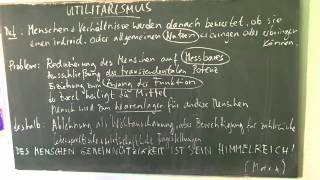 UTILITARISMUS
Def.: Menschen u. Verhältnisse werden danach bewertet, ob sie
einen individ. oder allgemeinen Nutzen erbringen oder erbringen
können.
Probleme: Reduzierung des Menschen auf Messbares
Ausschließung der transzendentalen Potenz
Erziehung zum Organ der Funktion
Zweck heiligt die Mittel
Mensch wird zum Warenlager für andere Menschen
deshalb: Ablehnung als Weltanschauung, aber Berechtigung für zahlreiche
Fragestellungen
DES MENSCHEN GEMEINNÜTZIGKEIT IST SEIN HIMMELREICH!
(Marx)